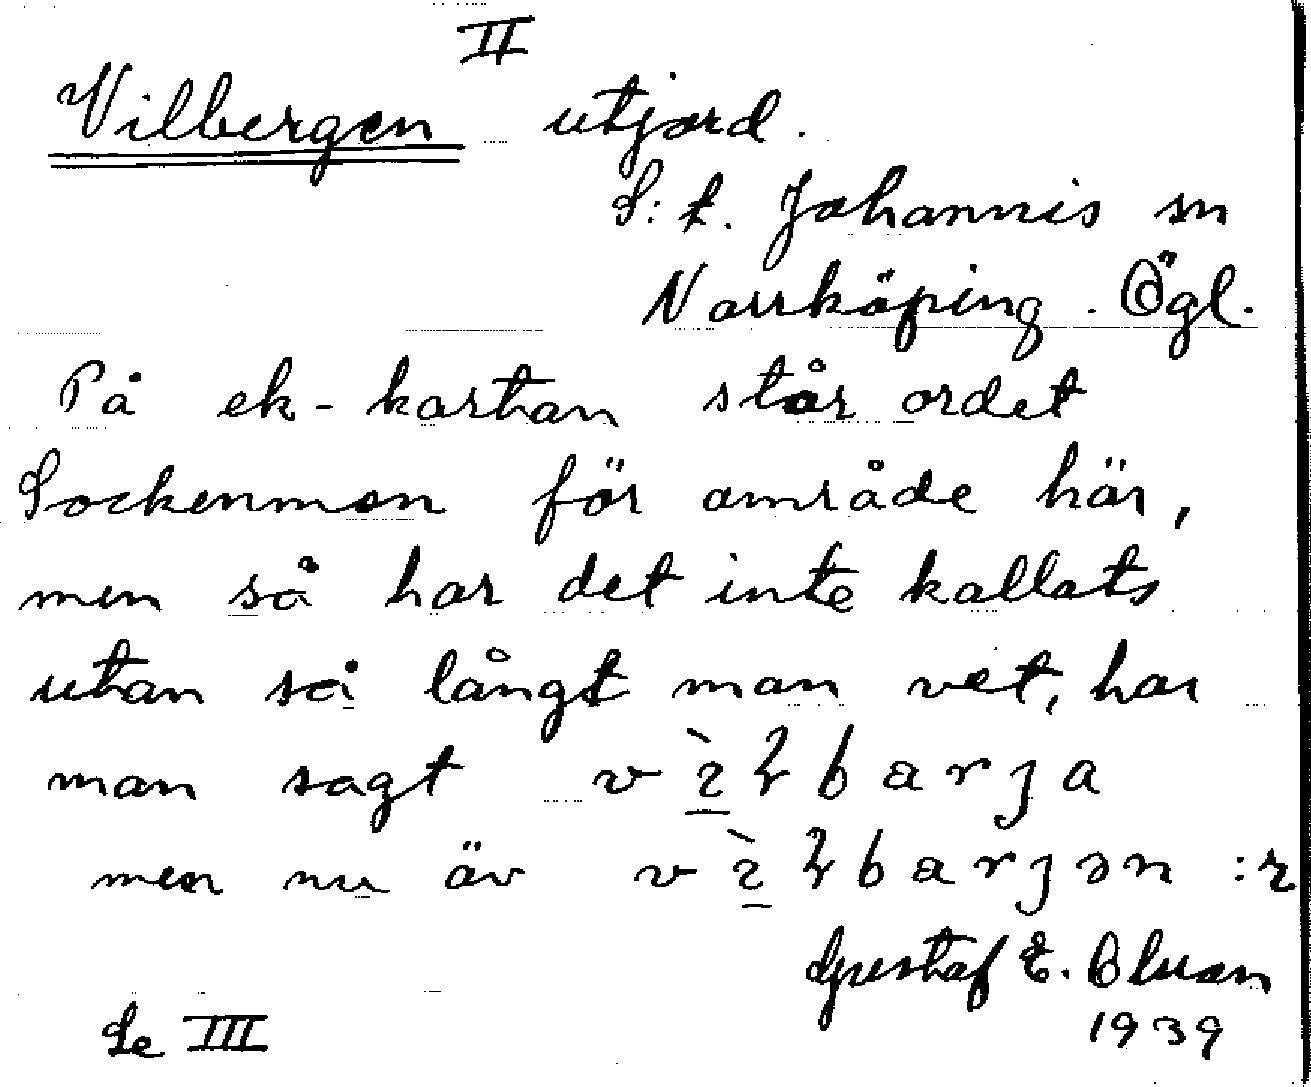 II
Vilbergen utjord.
S:t. Johannis sn
Norrköping. Ögl.
På ek-kartan står ordet
Sockenmon för område här,
men så har det inte kallats
utan så långt man vet, har
man sagt
men nu äv
Gustaf E. Olson
1939
Se III